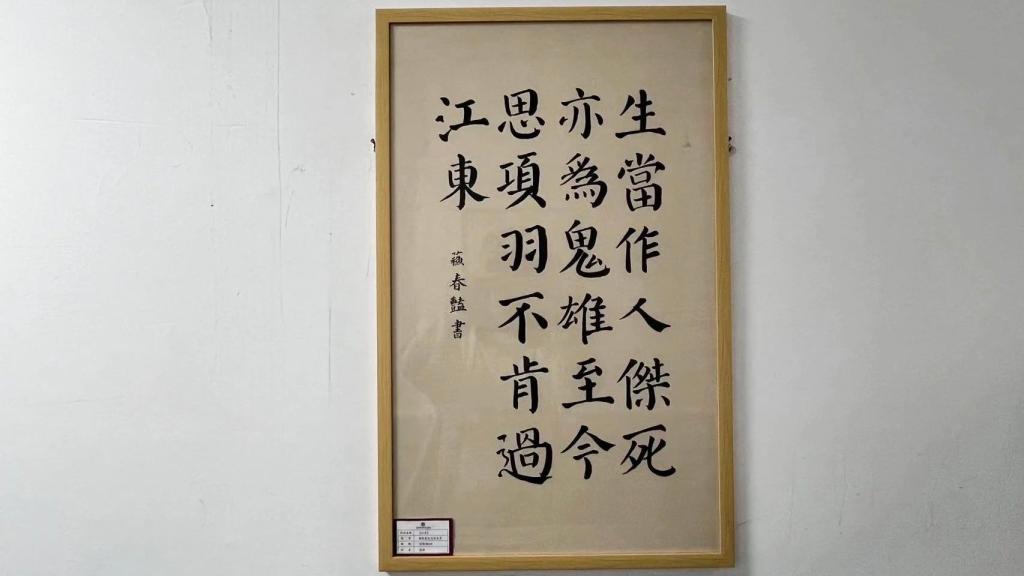 生當作人傑死
亦為鬼雄至今
思項羽不肯過
江東
蘓春豔書